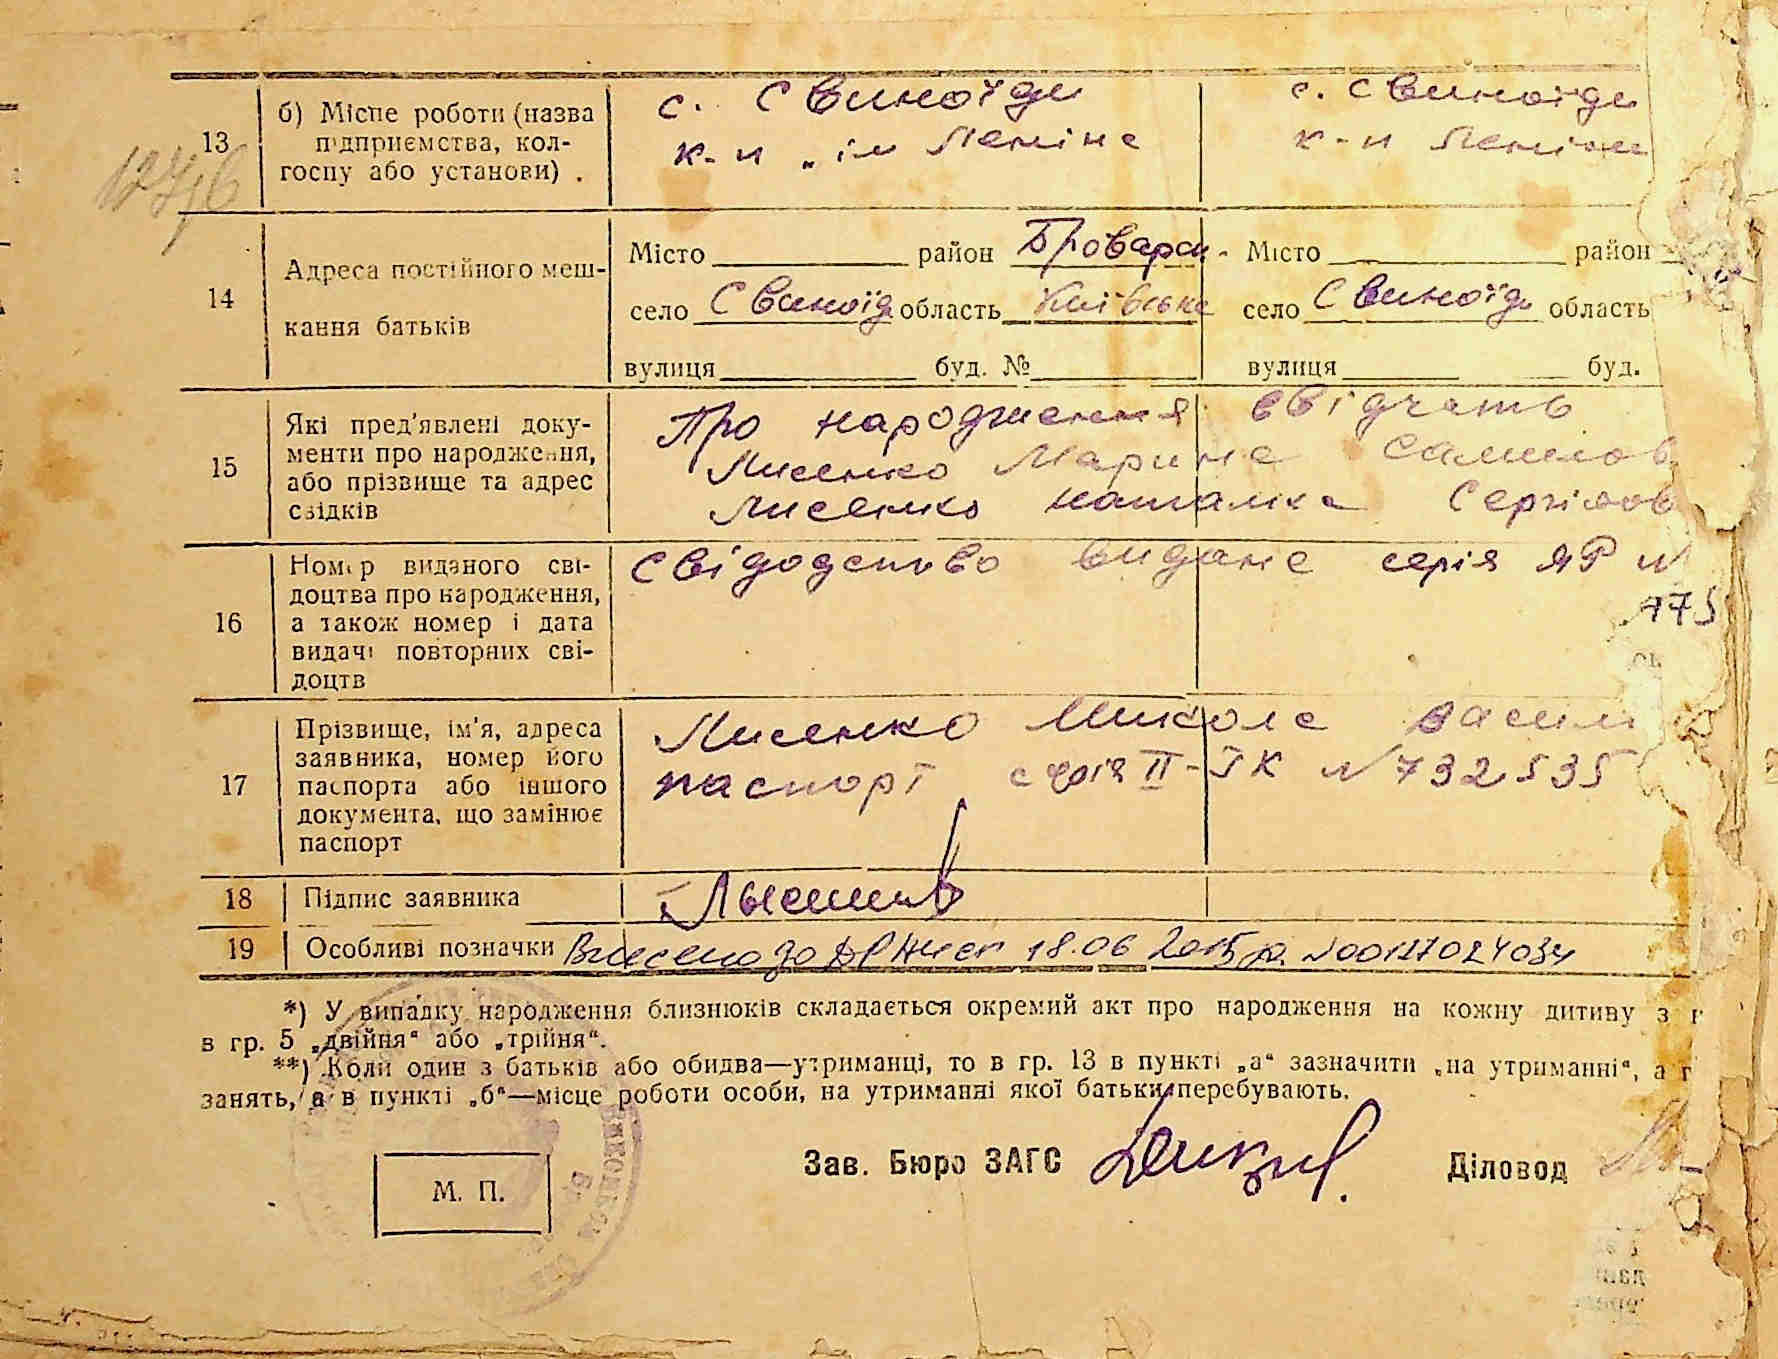 13 б) Місце роботи (назва підприємства, колгоспу або установи).
с. Свиноїди
к-п „ім Леніна
с. Свиноїди
к-п Леніна
1276
14 Адреса постійного мешкання батьків
Місто район Броварсь-
село Свиноїд область Київська
вулиця буд. №
Місто район
село Свиноїд область
вулиця буд.
15 Які пред'явлені документи про народження, або прізвище та адрес свідків
Про народження свідчать
Лисенко Марина Самилов
Лисенко Наталка Сергіїов
16 Номер виданого свідоцтва про народження, а також номер і дата видачі повторних свідоцтв
Свідодство видане серія ЯР N
775
17 Прізвище, ім'я, адреса заявника, номер його паспорта або іншого документа, що замінює паспорт
Лисенко Микола Васил
паспорт серія II-ІК N 732535
18 Підпис заявника
19 Особливі позначки Внесено до ДРАЦСГ 18.06 2015 р. N00127024034
*) У випадку народження близнюків складається окремий акт про народження на кожну дитину з
в гр. 5 „двійня“ або „трійня“.
**) Коли один з батьків або обидва—утриманці, то в гр. 13 в пункті „а“ зазначити „на утриманні“, а
занять, а в пункті „б“—місце роботи особи, на утриманні якої батьки перебувають.
Зав. Бюро ЗАГС
Діловод
М. П.